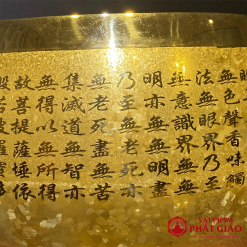 無色聲香味觸
法無眼界乃至
無意識界無無
明亦無無明盡
乃至無老死亦
無老死盡無苦
集滅道無智亦
無得以無所得
故菩提薩埵依
VẬT PHẨM
PHẬT GIÁO